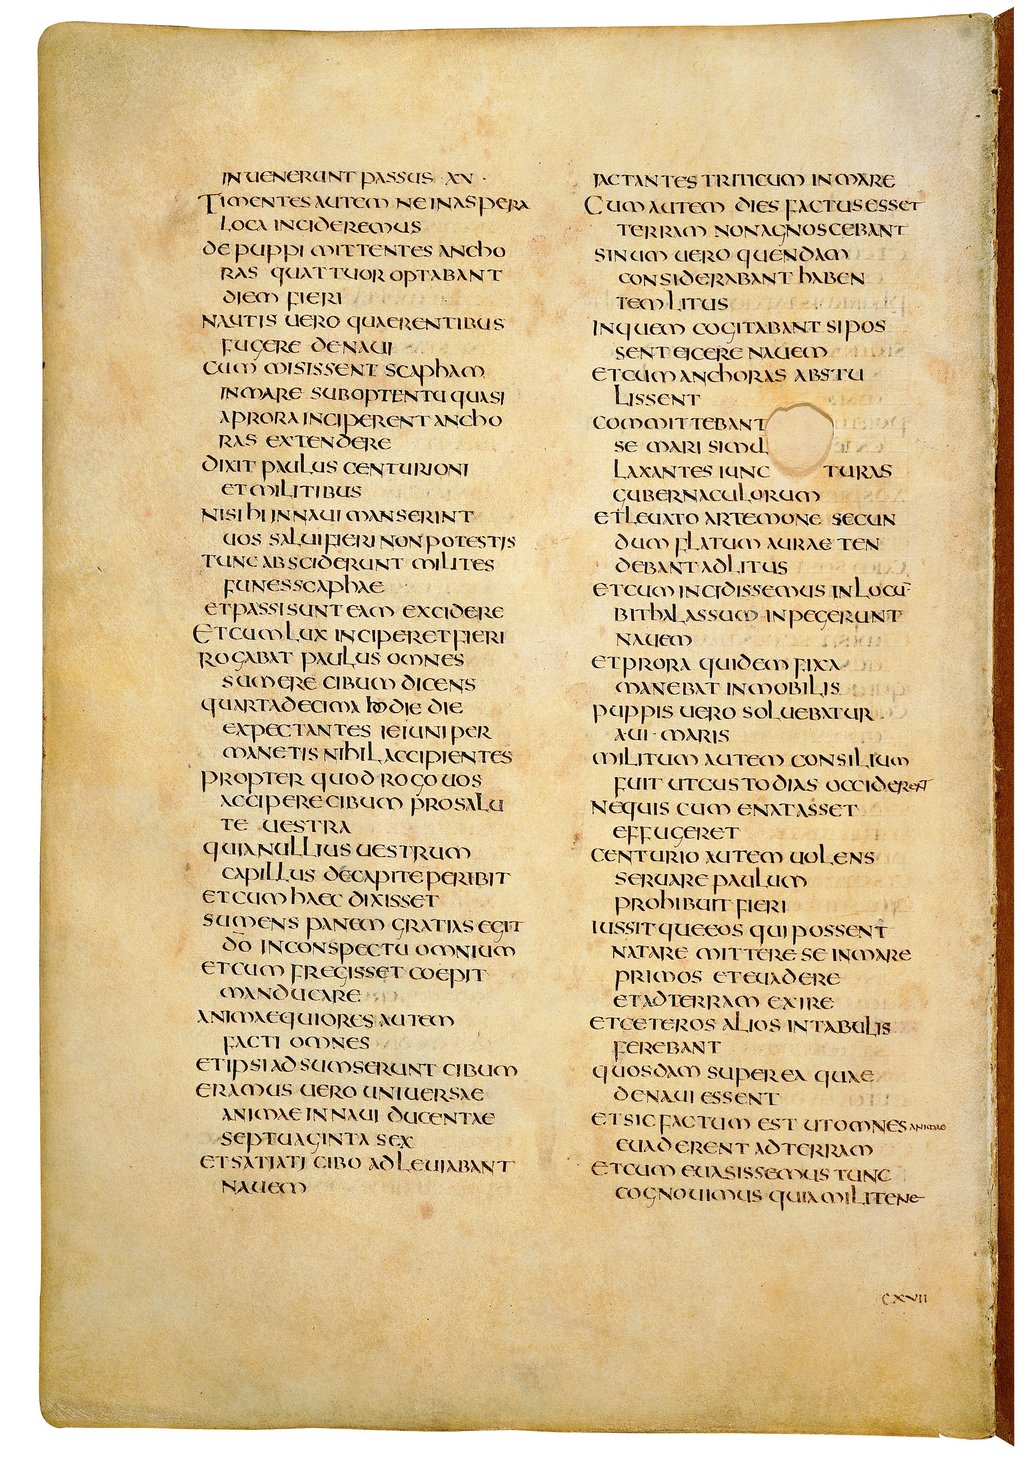 INUENERUNT PASSUS · XV ·
TIMENTES AUTEM NE IN ASPERA
LOCA INCIDEREMUS
DE PUPPI MITTENTES ANCHO
RAS QUATTUOR OPTABANT
DIEM FIERI
NAUTIS UERO QUAERENTIBUS
FUGERE DE NAUI
CUM MISISSENT SCAPHAM
IN MARE SUB OPTENTU QUASI
A PRORA INCIPERENT ANCHO
RAS EXTENDERE
DIXIT PAULUS CENTURIONI
ET MILITIBUS
NISI HI IN NAUI MANSERINT
UOS SALUI FIERI NON POTESTIS
TUNC ABSCIDERUNT MILITES
FUNES SCAPHAE
ET PASSI SUNT EAM EXCIDERE
ET CUM LUX INCIPERET FIERI
ROGABAT PAULUS OMNES
SUMERE CIBUM DICENS
QUARTADECIMA HODIE DIE
EXPECTANTES IEIUNI PER
MANETIS NIHIL ACCIPIENTES
PROPTER QUOD ROGO UOS
ACCIPERE CIBUM PRO SALU
TE UESTRA
QUIA NULLIUS UESTRUM
CAPILLUS DE CAPITE PERIBIT
ET CUM HAEC DIXISSET
SUMENS PANEM GRATIAS EGIT
D̄O IN CONSPECTU OMNIUM
ET CUM FREGISSET COEPIT
MANDUCARE
ANIMAEQUIORES AUTEM
FACTI OMNES
ET IPSI ADSUMSERUNT CIBUM
ERAMUS UERO UNIUERSAE
ANIMAE IN NAUI DUCENTAE
SEPTUAGINTA SEX
ET SATIATI CIBO ADLEUIABANT
NAUEM
IACTANTES TRITICUM IN MARE
CUM AUTEM DIES FACTUS ESSET
TERRAM NON AGNOSCEBANT
SINUM UERO QUENDAM
CONSIDERABANT HABEN
TEM LITUS
IN QUEM COGITABANT SI POS
SENT EICERE NAUEM
ET CUM ANCHORAS ABSTU
LISSENT
COMMITTEBANT
SE MARI SIMUL
LAXANTES IUNC TURAS
GUBERNACULORUM
ET LEUATO ARTEMONE SECUN
DUM FLATUM AURAE TEN
DEBANT AD LITUS
ET CUM INCIDISSEMUS IN LOCŪ
BITHALASSUM INPEGERUNT
NAUEM
ET PRORA QUIDEM FIXA
MANEBAT INMOBILIS
PUPPIS UERO SOLUEBATUR
A UI · MARIS
MILITUM AUTEM CONSILIUM
FUIT UT CUSTODIAS OCCIDERET
NE QUIS CUM ENATASSET
EFFUGERET
CENTURIO AUTEM UOLENS
SERUARE PAULUM
PROHIBUIT FIERI
IUSSITQUE EOS QUI POSSENT
NATARE MITTERE SE IN MARE
PRIMOS ET EUADERE
ET AD TERRAM EXIRE
ET CETEROS ALIOS IN TABULIS
FEREBANT
QUOSDAM SUPER EA QUAE
DE NAUI ESSENT
ET SIC FACTUM EST UT OMNES ANIMAE
EUADERENT AD TERRAM
ET CUM EUASISSEMUS TUNC
COGNOUIMUS QUIA MILITENE
CXVII